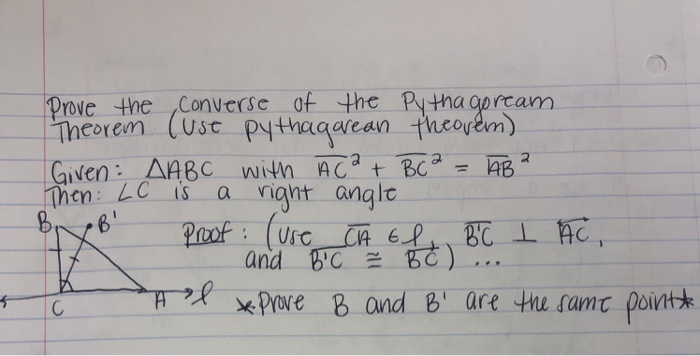 Prove the converse of the Pythagoream
Theorem (use pythagarean theorem)
Given: △ABC with A̅C̅² + B̅C̅² = A̅B̅²
Then: ∠C is a right angle
B B' Proof: (Use C̅A̅ ∈ ℓ, B̅'̅C̅ ⊥ A̅C̅,
and B̅'̅C̅ ≅ B̅C̅) ...
C A ℓ *Prove B and B' are the same point*